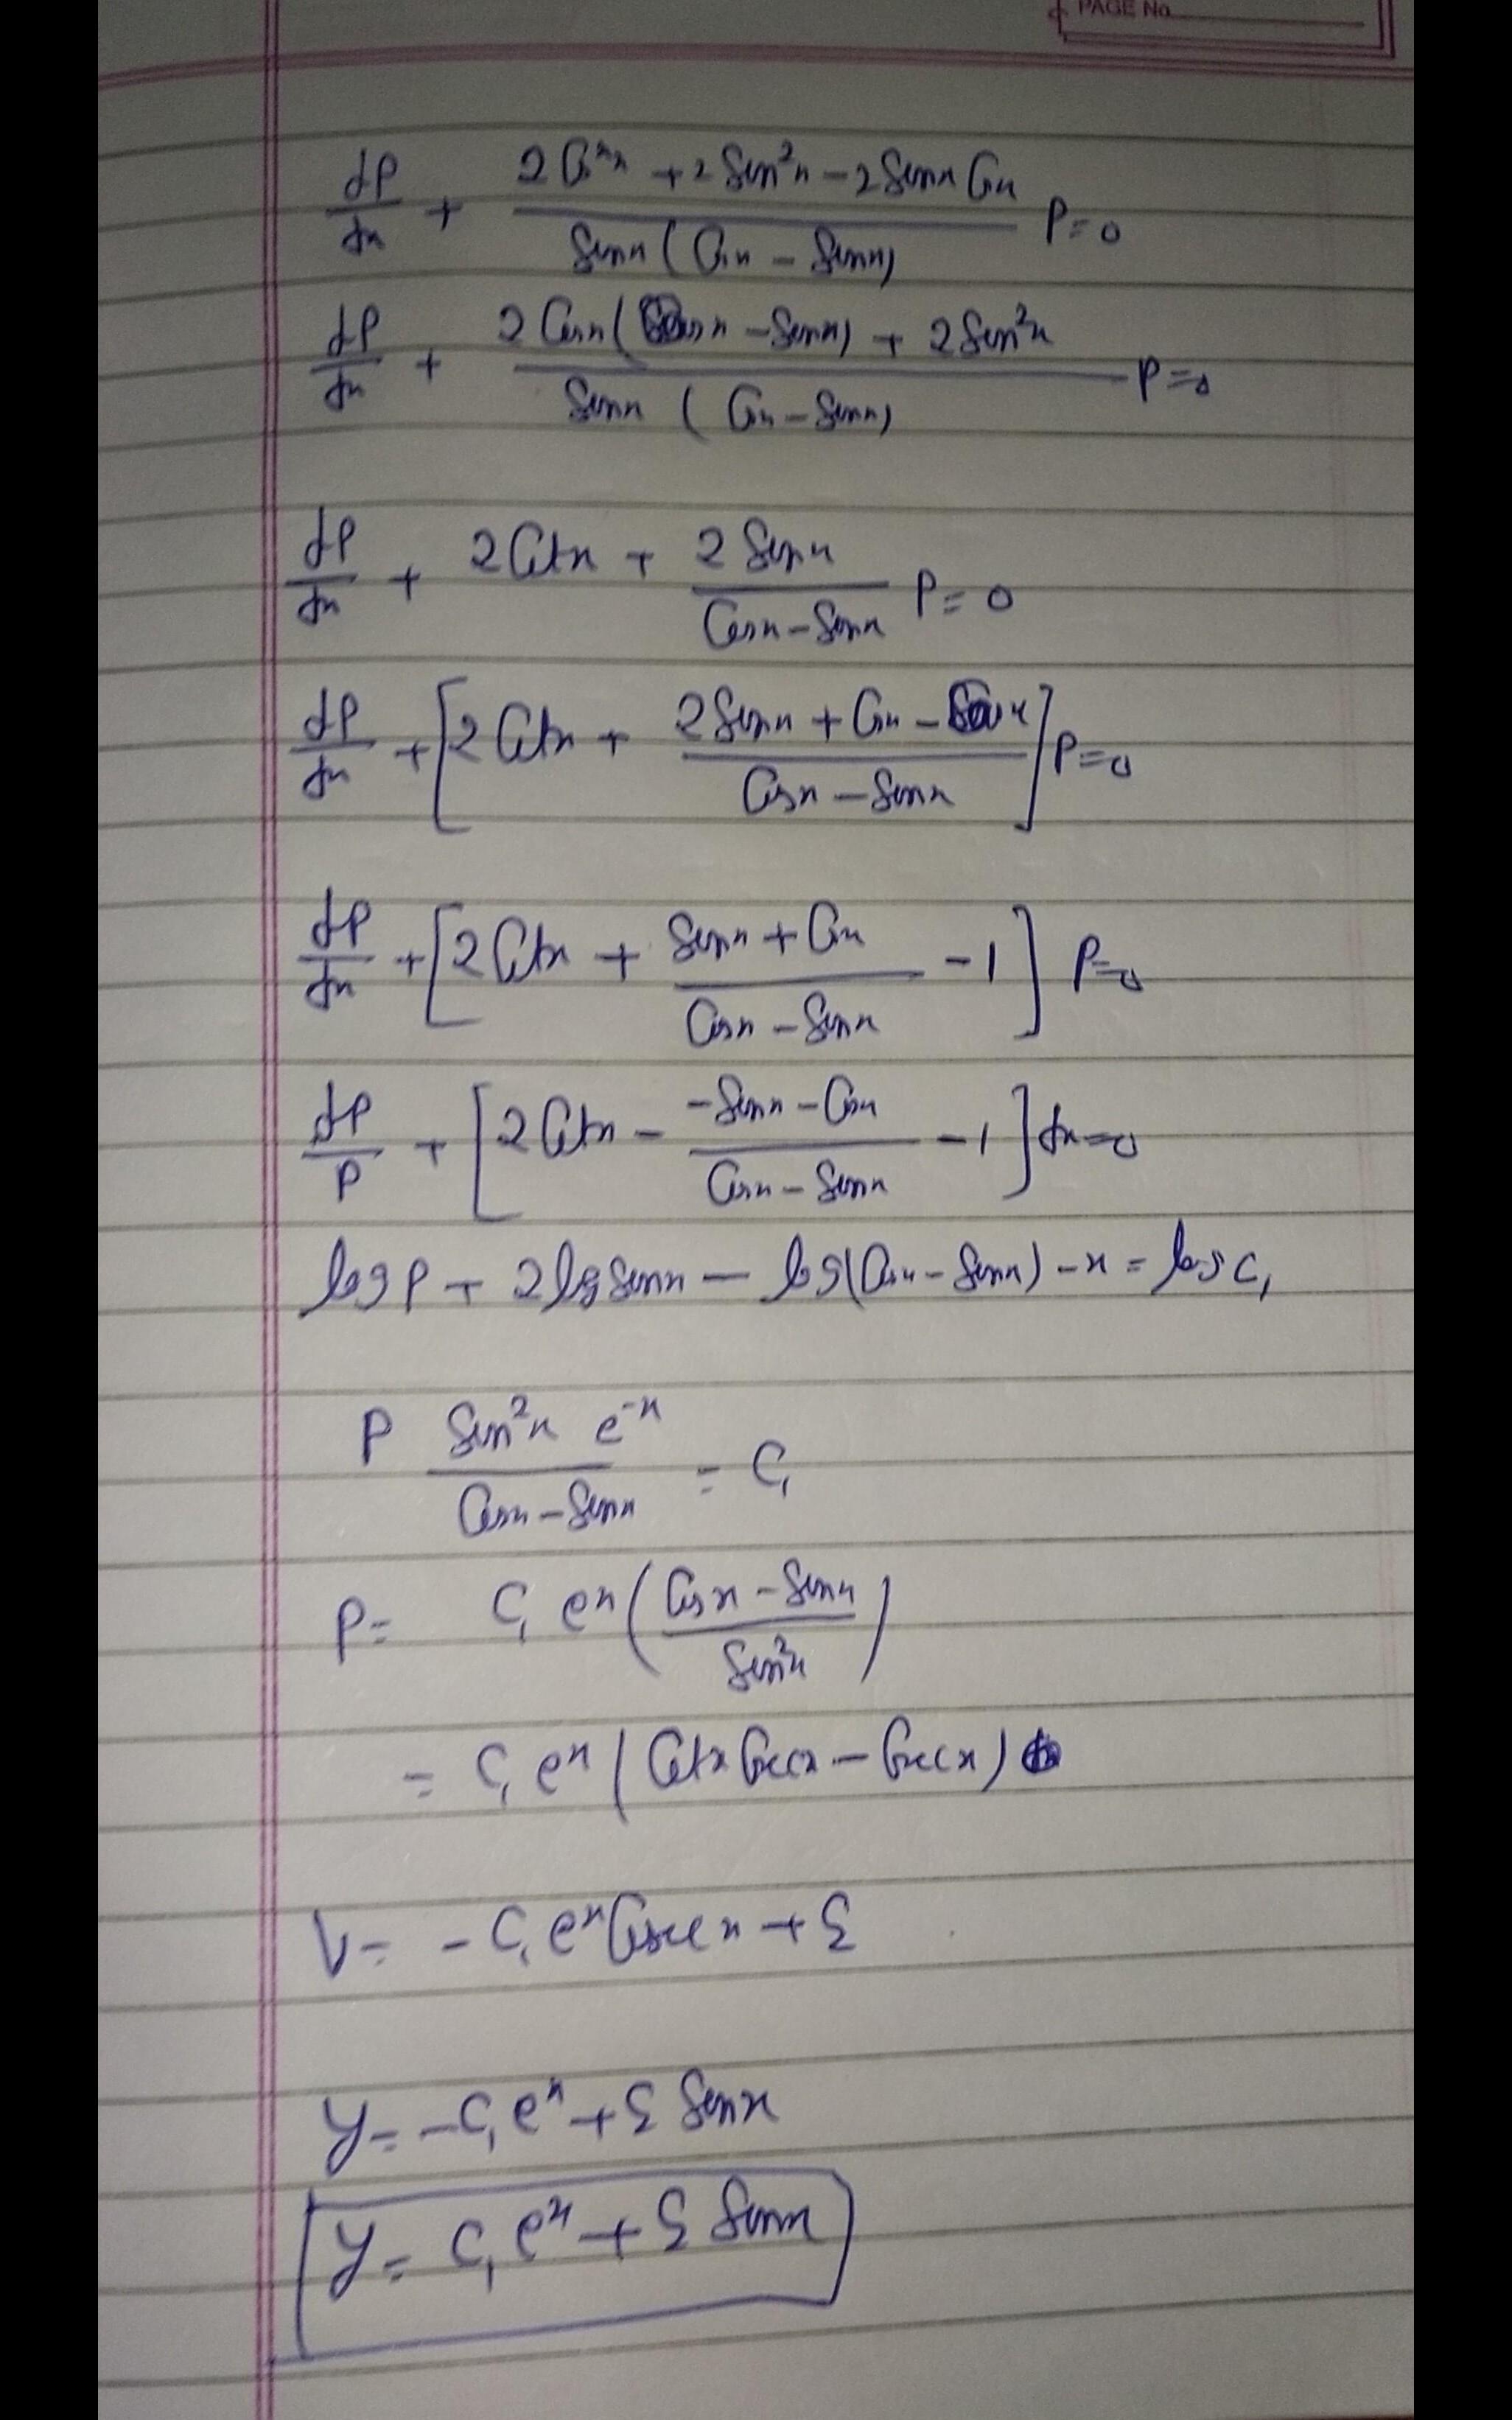 PAGE No.
dP/dx + (2Cos²x + 2Sin²x - 2Sinx Cosx)/(Sinx(Cosx - Sinx)) P = 0
dP/dx + (2Cosx(Cosx - Sinx) + 2Sin²x)/(Sinx(Cosx - Sinx)) P = 0
dP/dx + 2Cotx + (2Sinx)/(Cosx - Sinx) P = 0
dP/dx + [2Cotx + (2Sinx + Cosx - Cosx)/(Cosx - Sinx)] P = 0
dP/dx + [2Cotx + (Sinx + Cosx)/(Cosx - Sinx) - 1] P = 0
dP/P + [2Cotx - (-Sinx - Cosx)/(Cosx - Sinx) - 1] dx = 0
log P + 2 log Sinx - log(Cosx - Sinx) - x = log C₁
P (Sin²x e⁻ˣ)/(Cosx - Sinx) = C₁
P = C₁ eˣ ((Cosx - Sinx)/Sin²x)
= C₁ eˣ (Cotx Cosecx - Cosecx)
V = - C₁ eˣ Cosecx + C₂
y = - C₁ eˣ + C₂ Sinx
y = C₁ eˣ + C₂ Sinx